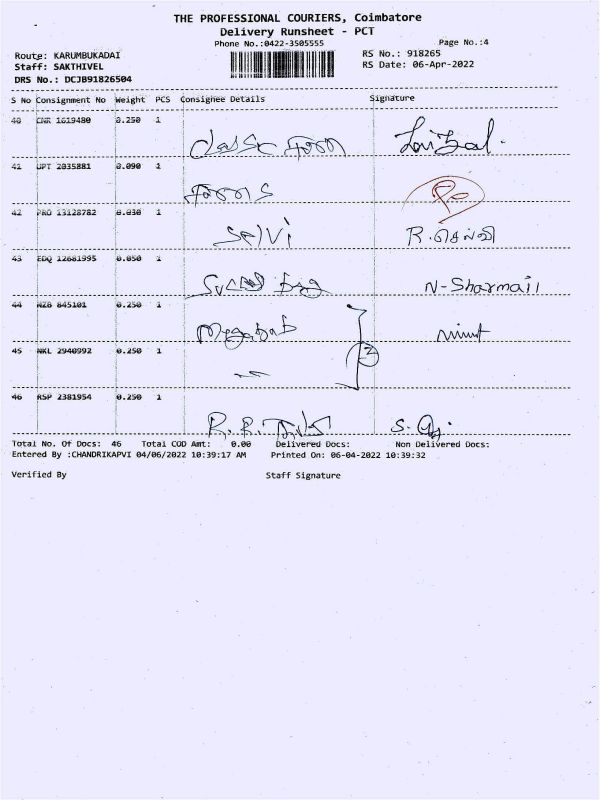 THE PROFESSIONAL COURIERS, Coimbatore
Delivery Runsheet - PCT
Phone No.:0422-3505555
Page No.:4
Route: KARUMBUKADAI
RS No.: 918265
Staff: SAKTHIVEL
RS Date: 06-Apr-2022
DRS No.: DCJB91826504
S No Consignment No Weight PCS Consignee Details Signature
40 CNR 1619480 0.250 1
41 UPT 2035881 0.090 1
42 PRO 13128782 0.030 1 Selvi R. செல்வி
43 EDQ 12681995 0.050 1 N-Sharmail
44 NZB 845101 0.250 1
45 NKL 2940992 0.250 1
2
46 RSP 2381954 0.250 1
Total No. Of Docs: 46 Total COD Amt: 0.00 Delivered Docs: Non Delivered Docs:
Entered By :CHANDRIKAPVI 04/06/2022 10:39:17 AM Printed On: 06-04-2022 10:39:32
Verified By Staff Signature